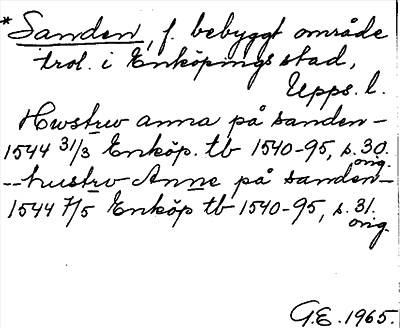 *Sanden, f. bebyggt område
trol. i Enköpings stad,
Upps. l.
Hwstrw anna på sanden –
1544 31/3 Enköp. tb 1540-95, s. 30.
orig.
-- hustrv Anne på sanden –
1544 7/5 Enköp tb 1540-95, s. 31.
orig.
G.E. 1965.